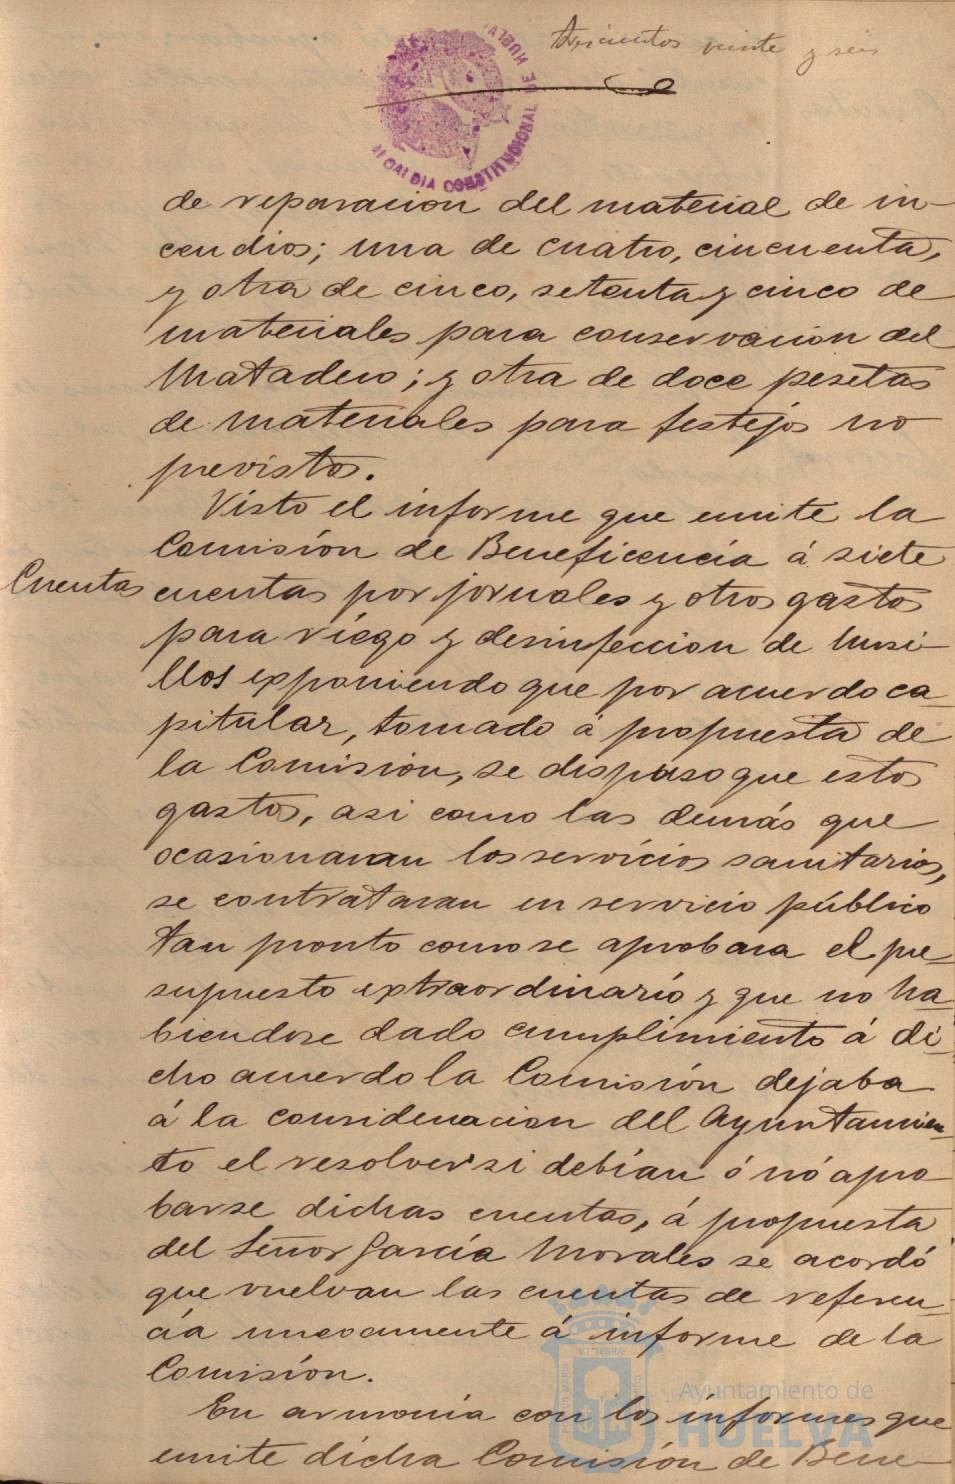 trescientos veinte y seis
ALCALDIA CONSTITUCIONAL DE HUELVA
de reparacion del material de in-
cendios; una de cuatro, cincuenta,
y otra de cinco, setenta y cinco de
materiales para conservacion del
Matadero; y otra de doce pesetas
de materiales para festejos no
previstos.
Visto el informe que emite la
Comisión de Beneficencia á siete
Cuentas
cuentas por jornales y otros gastos
para riego y desinfeccion de husi-
llos exponiendo que por acuerdo ca-
pitular, tomado á propuesta de
la Comision, se dispuso que estos
gastos, asi como las demás que
ocasionaran los servicios sanitarios,
se contrataran en servicio público
tan pronto como se aprobara el pre-
supuesto extraordinario y que no ha-
biendose dado cumplimiento á di-
cho acuerdo la Comisión dejaba
á la consideracion del Ayuntamien-
to el resolver si debían ó nó apro-
barse dichas cuentas, á propuesta
del Señor García Morales se acordó
que vuelvan las cuentas de referen-
cia nuevamente á informe de la
Comisión.
En armonia con los informes que
emite dicha Comisión de Bene-
Ayuntamiento de
HUELVA